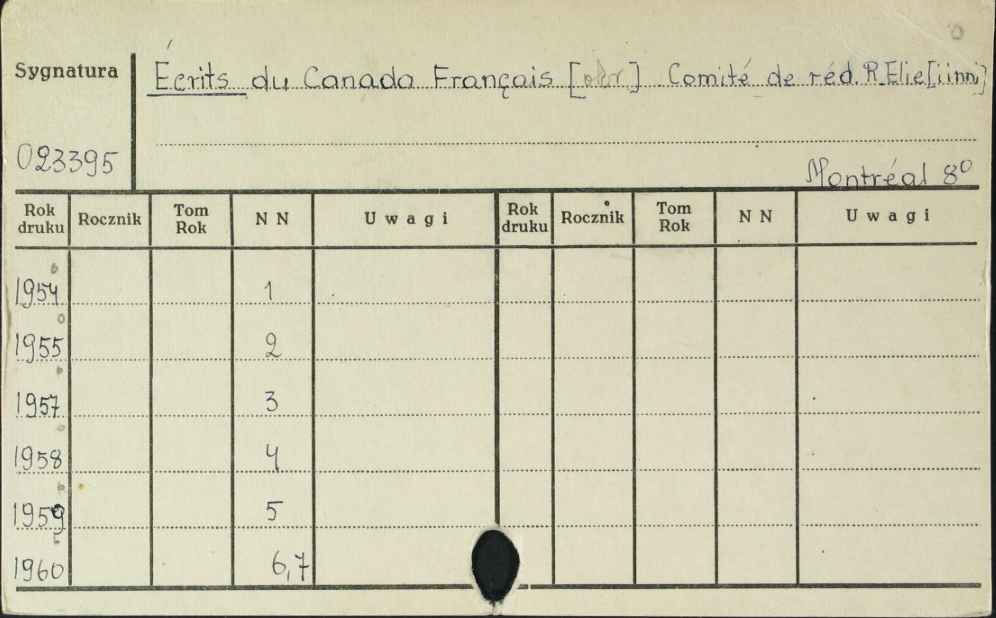 Sygnatura
Écrits du Canada Français [] Comité de réd. R. Elie [i inni]
023395
Montréal 8°
Rok druku Rocznik Tom Rok NN Uwagi Rok druku Rocznik Tom Rok NN Uwagi
1954 1
1955 2
1957 3
1958 4
1959 5
1960 6,7